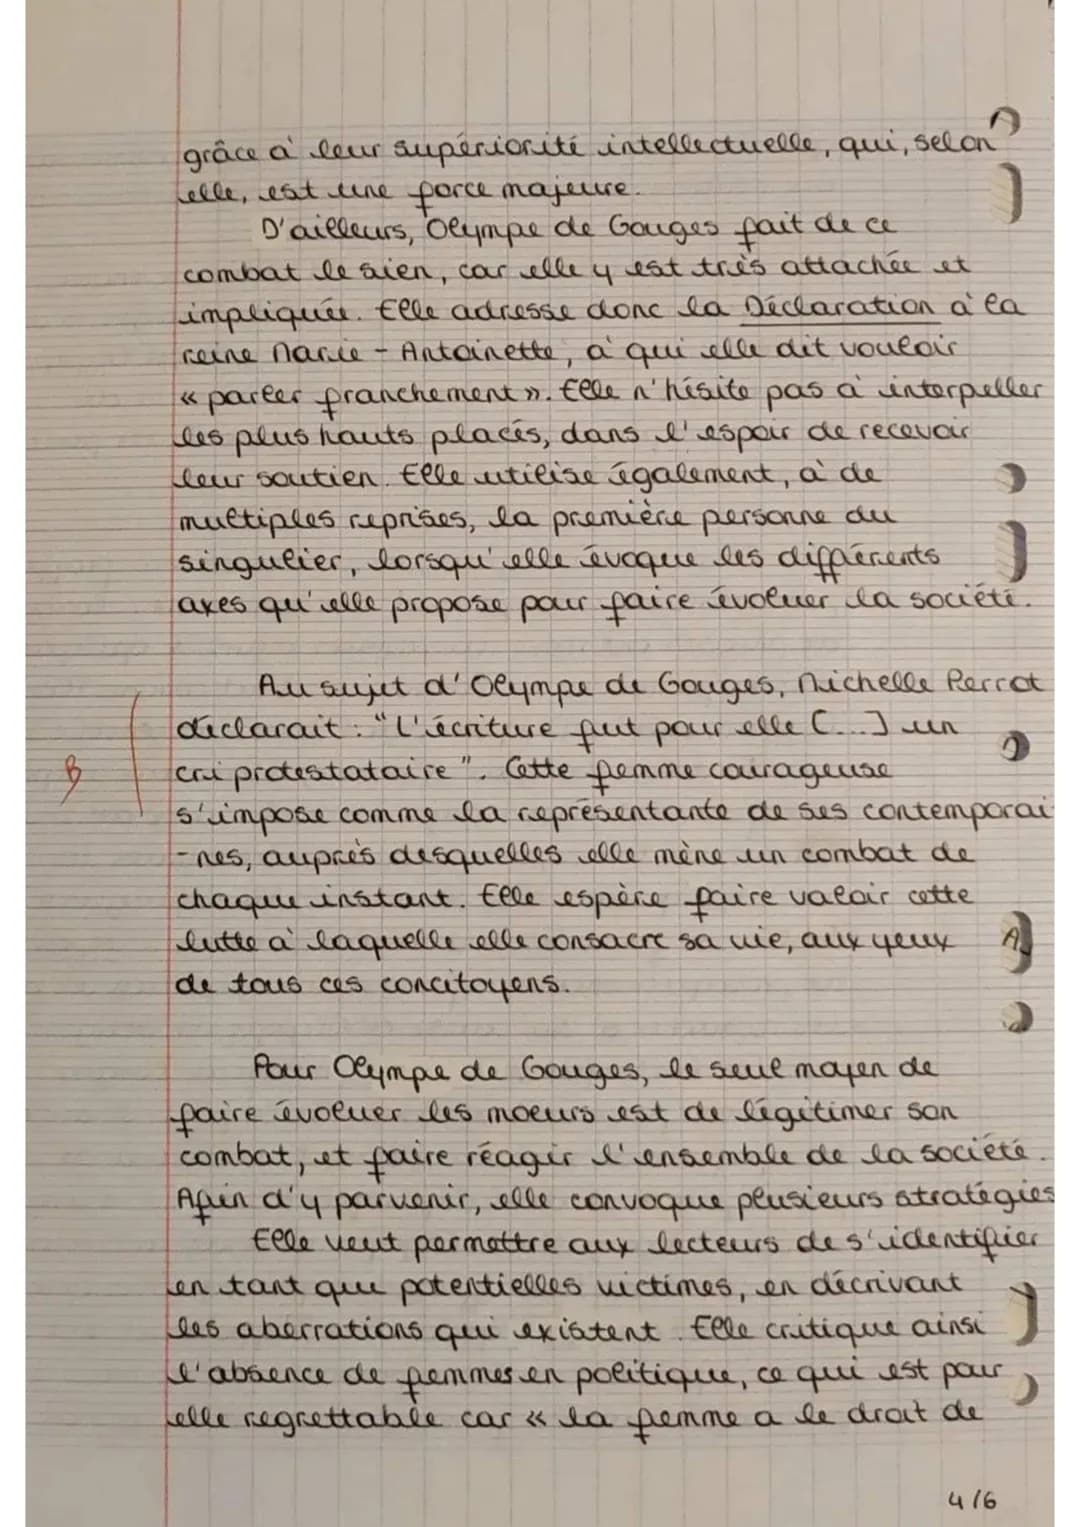 grâce à leur supériorité intellectuelle, qui, selon
elle, est une force majeure.
D'ailleurs, Olympe de Gouges fait de ce
combat le sien, car elle y est très attachée et
impliquée. Elle adresse donc la Déclaration à la
reine Marie-Antoinette, à qui elle dit vouloir
« parler franchement ». Elle n'hésite pas à interpeller
les plus hauts placés, dans l'espoir de recevoir
leur soutien. Elle utilise également, à de
multiples reprises, la première personne du
singulier, lorsqu'elle évoque les différents
axes qu'elle propose pour faire évoluer la société.
Au sujet d'Olympe de Gouges, Michelle Perrot
déclarait : "L'écriture fut pour elle [...] un
B cri protestataire". Cette femme courageuse
s'impose comme la représentante de ses contemporai
-nes, auprès desquelles elle mène un combat de
chaque instant. Elle espère faire valoir cette
lutte à laquelle elle consacre sa vie, aux yeux
de tous ces concitoyens.
Pour Olympe de Gouges, le seul moyen de
faire évoluer les moeurs est de légitimer son
combat, et faire réagir l'ensemble de la société.
Afin d'y parvenir, elle convoque plusieurs stratégies
Elle veut permettre aux lecteurs de s'identifier
en tant que potentielles victimes, en décrivant
les aberrations qui existent. Elle critique ainsi
l'absence de femmes en politique, ce qui est pour
elle regrettable car « la femme a le droit de
4/6